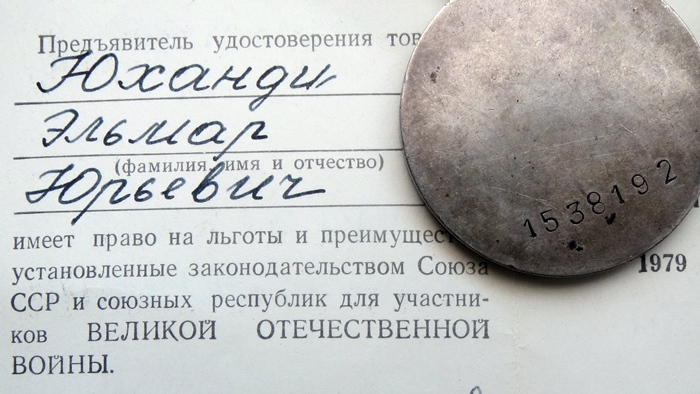 Предъявитель удостоверения тов
Юханди
Эльмар
(фамилия, имя и отчество)
Юрьевич
имеет право на льготы и преимущес
установленные законодательством Союза
ССР и союзных республик для участни-
ков ВЕЛИКОЙ ОТЕЧЕСТВЕННОЙ
ВОЙНЫ.
1538192
1979